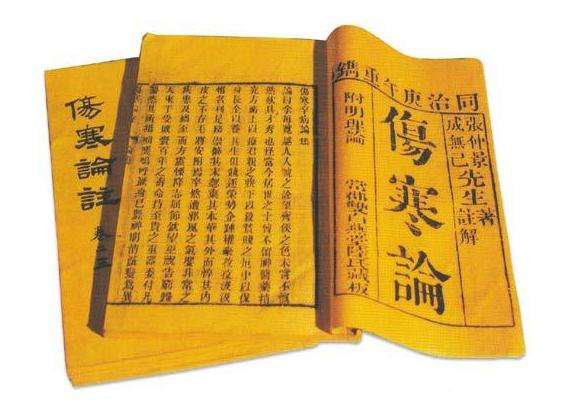 同治庚午重鐫
張仲景先生著
成無己註解
傷寒論
附明理論
常郡雙白燕堂陸氏藏板
傷寒卒病論集
論曰余每覽越人入虢之診望齊侯之色未嘗不慨
然歎其才秀也怪當今居世之士曾不留神醫藥精究
方術上以療君親之疾下以救貧賤之厄中以保
身長全以養其生但競逐榮勢企踵權豪孜孜汲汲
惟名利是務崇飾其末忽棄其本華其外而悴其內
皮之不存毛將安附焉卒然遭邪風之氣嬰非常之
疾患及禍至而方震慄降志屈節欽望巫祝告窮歸
天束手受敗賫百年之壽命持至貴之重器委付凡
醫恣其所措咄嗟嗚呼厥身已斃神明消滅變為異
傷寒論註 卷三